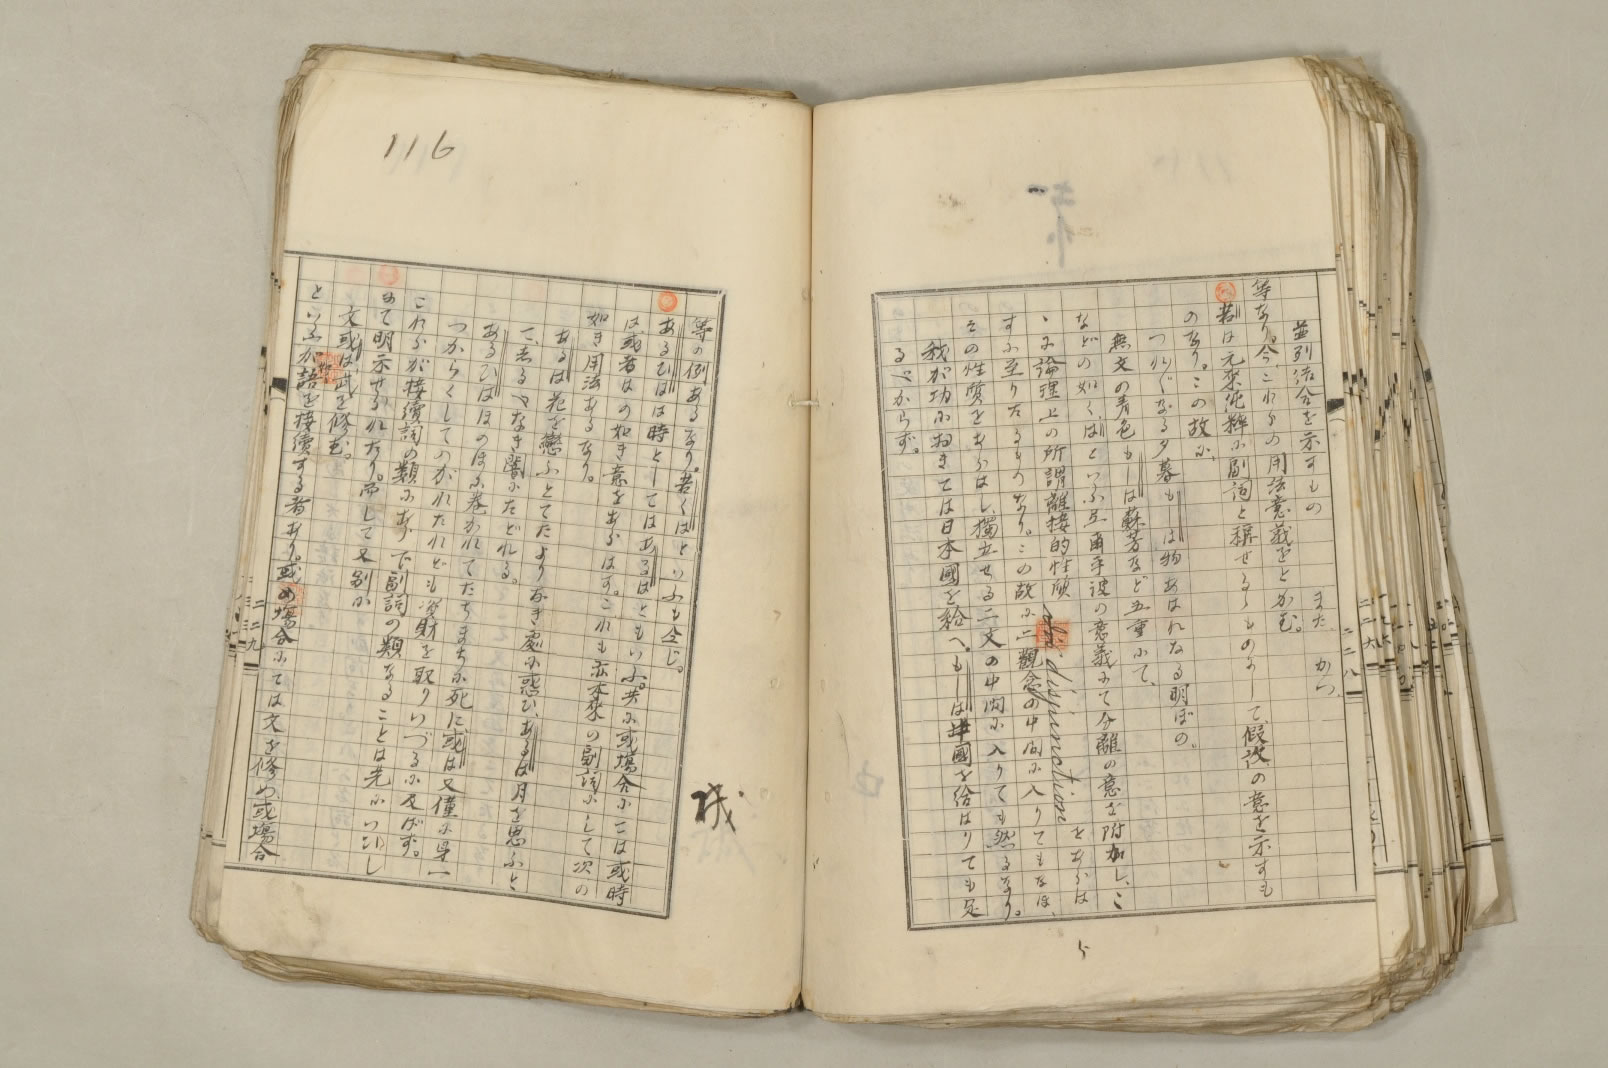 並列流合を示すもの　また、かつ、
等なり。今、これらの用法意義をとかむ。
若は元來純粹に副詞と稱せらるゝものにして、假設の意を示すも
のなり。この故に、
つれ〴〵なる夕暮もしは物あはれなる明ぼの。
無文の青色もしは蘇芳など五重にて、
などの如く、はといふ互爾乎波の意義にて分離の意を附加し、こ
ゝに論理上の所謂離接的性質 disjunction をあらは
すに至りたるものなり。この故に二觀念の中間に入りてもなほ、
その性質をあらはし、獨立せる二文の中間に入りても然るなり。
我が功におきては日本國を給へ。もしは半國を給はりても足
るべからず。
二二八
等の例あるなり。若くはといふも仝じ。
あるひはは時としてはあるはともいふ。共に或場合には或時
は、或者はの如き意をあらはす。これも亦本來の副詞にして次の
如き用法あるなり。
あるは花を戀ふとてたよりなき處に惑ひ、あるは月を思ふと
て、しるべなき闇にたどれる。
あるひはほのほに卷かれてたちまちに死に、或は又僅に身一
つからくしてのがれたれども資財を取りいづるに及ばず。
これらが接續詞の類にあらで副詞の類なることは先にいひし
めて明示せられたり。而して又別に
文或は武を修む。
といふが如き語を接續する者あり。或の場合にては文を修め、或場合
二二九
116